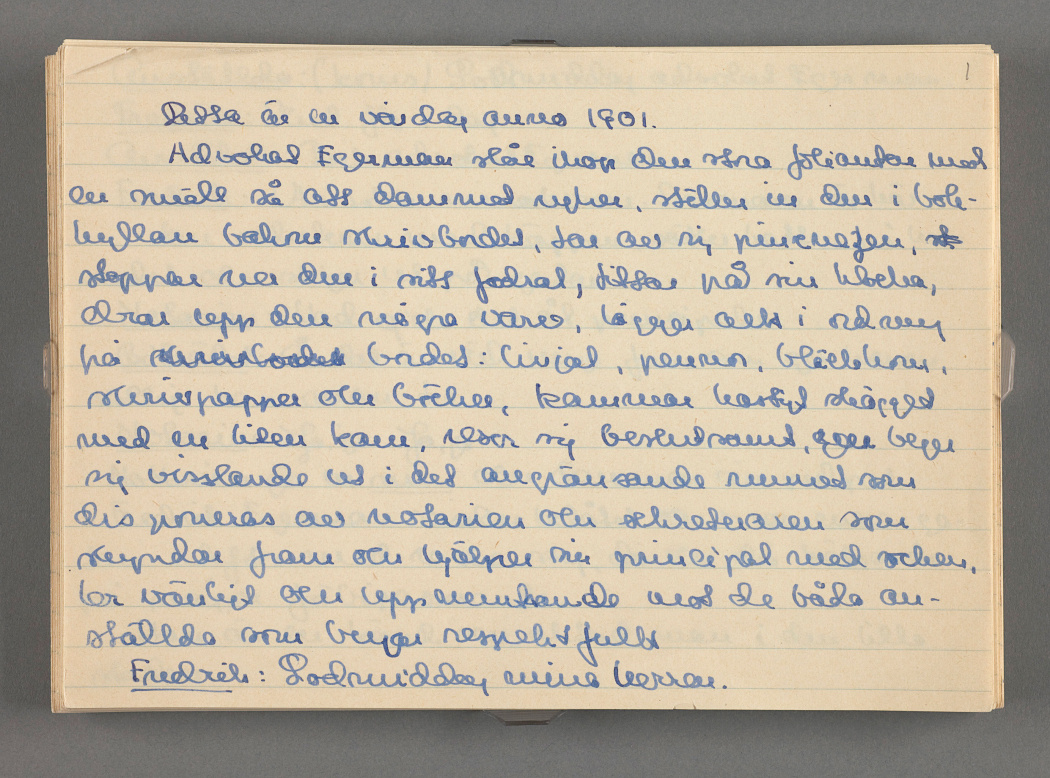 1
Detta är en vårdag anno 1901.
Advokat Egerman slår ihop den stora folianten med
en smäll så att dammet ryker, ställer in den i bok-
hyllan bakom skrivbordet, tar av sig pincenezen,
stoppar ner den i sitt fodral, tittar på sin klocka,
drar upp den några varv, lägger allt i ordning
på skrivbordet bordet: linjal, pennor, bläckhorn,
skrivpapper och böcker, kammar hastigt skägget
med en liten kam, reser sig beslutsamt, beger
sig visslande ut i det angränsande rummet som
disponeras av notarien och sekreteraren som
skyndar fram och hjälper sin principal med rocken,
ler vänligt och uppmuntrande mot de båda an-
ställda som bugar respektfullt
Fredrik: Godmiddag mina herrar.